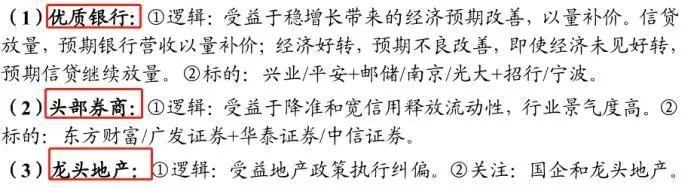 （1）优质银行：①逻辑：受益于稳增长带来的经济预期改善，以量补价。信贷
放量，预期银行营收以量补价；经济好转，预期不良改善，即使经济未见好转，
预期信贷继续放量。②标的：兴业/平安+邮储/南京/光大+招行/宁波。
（2）头部券商：①逻辑：受益于降准和宽信用释放流动性，行业景气度高。②
标的：东方财富/广发证券+华泰证券/中信证券。
（3）龙头地产：①逻辑：受益地产政策执行纠偏。②关注：国企和龙头地产。